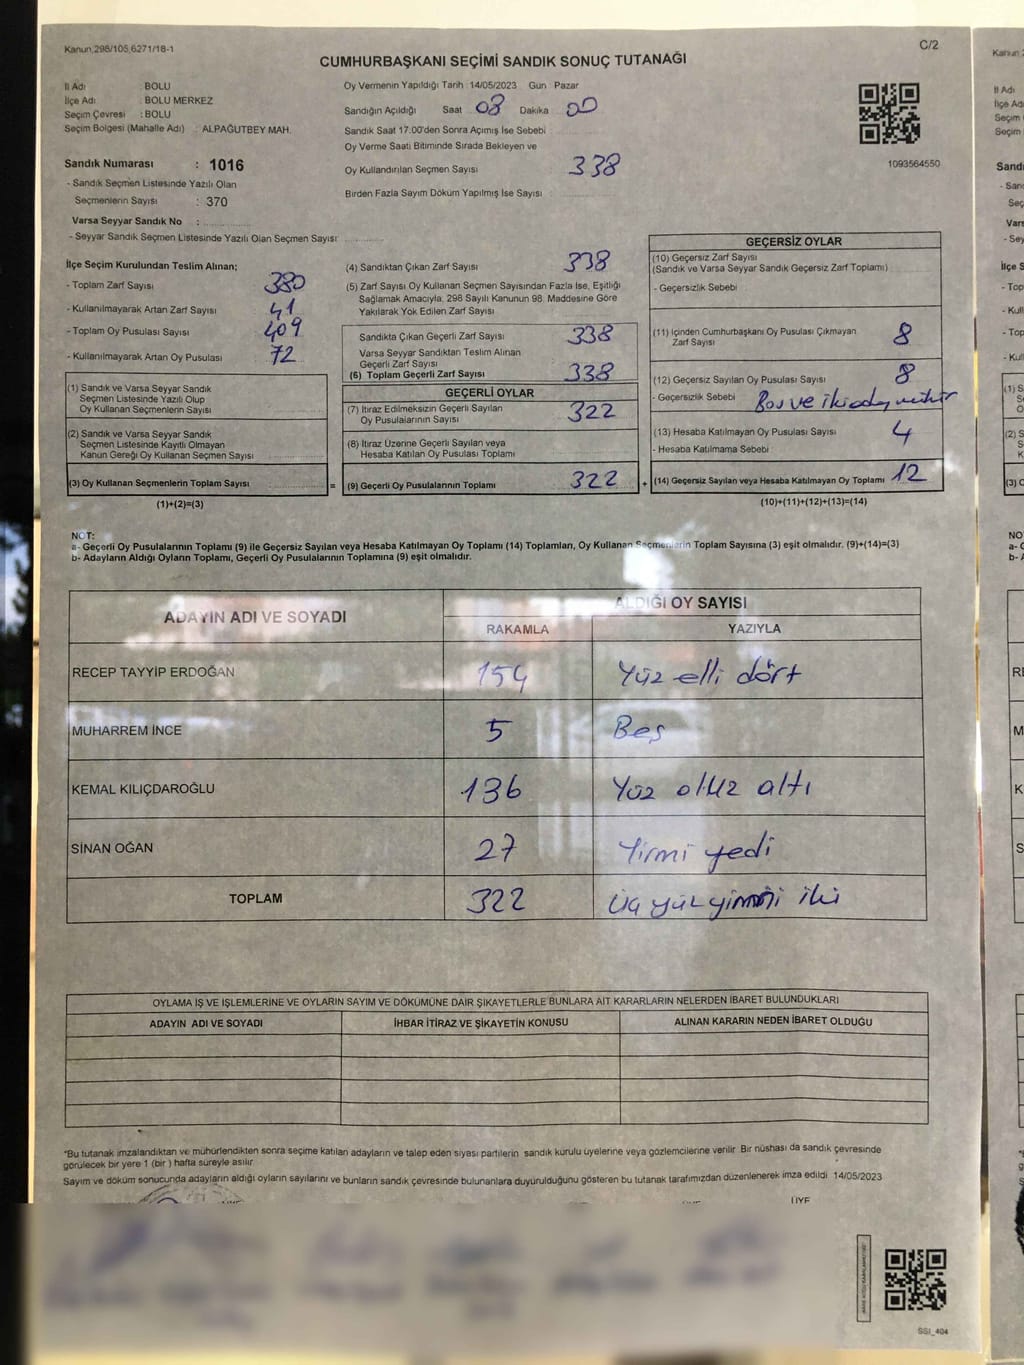 Kanun,298/105,6271/18-1
C/2
CUMHURBAŞKANI SEÇİMİ SANDIK SONUÇ TUTANAĞI
İl Adı : BOLU
İlçe Adı : BOLU MERKEZ
Seçim Çevresi : BOLU
Seçim Bölgesi (Mahalle Adı) : ALPAĞUTBEY MAH.
Sandık Numarası : 1016
- Sandık Seçmen Listesinde Yazılı Olan
Seçmenlerin Sayısı : 370
Varsa Seyyar Sandık No :
- Seyyar Sandık Seçmen Listesinde Yazılı Olan Seçmen Sayısı
Oy Vermenin Yapıldığı Tarih 14/05/2023 Gün Pazar
Sandığın Açıldığı Saat 08 Dakika 00
Sandık Saat 17.00'den Sonra Açımış İse Sebebi
Oy Verme Saati Bitiminde Sırada Bekleyen ve
Oy Kullandırılan Seçmen Sayısı 338
Birden Fazla Sayım Döküm Yapılmış İse Sayısı
1093564550
İlçe Seçim Kurulundan Teslim Alınan;
- Toplam Zarf Sayısı 380
- Kullanılmayarak Artan Zarf Sayısı 41
- Toplam Oy Pusulası Sayısı 409
- Kullanılmayarak Artan Oy Pusulası 72
(1) Sandık ve Varsa Seyyar Sandık
Seçmen Listesinde Yazılı Olup
Oy Kullanan Seçmenlerin Sayısı
(2) Sandık ve Varsa Seyyar Sandık
Seçmen Listesinde Kayıtlı Olmayan
Kanun Gereği Oy Kullanan Seçmen Sayısı
(3) Oy Kullanan Seçmenlerin Toplam Sayısı =
(1)+(2)=(3)
(4) Sandıktan Çıkan Zarf Sayısı 338
(5) Zarf Sayısı Oy Kullanan Seçmen Sayısından Fazla İse, Eşitliği
Sağlamak Amacıyla, 298 Sayılı Kanunun 98. Maddesine Göre
Yakılarak Yok Edilen Zarf Sayısı
Sandıkta Çıkan Geçerli Zarf Sayısı 338
Varsa Seyyar Sandıktan Teslim Alınan
Geçerli Zarf Sayısı
(6) Toplam Geçerli Zarf Sayısı 338
GEÇERLİ OYLAR
(7) İtiraz Edilmeksizin Geçerli Sayılan
Oy Pusulalarının Sayısı 322
(8) İtiraz Üzerine Geçerli Sayılan veya
Hesaba Katılan Oy Pusulası Toplamı
(9) Geçerli Oy Pusulalarının Toplamı 322 +
GEÇERSİZ OYLAR
(10) Geçersiz Zarf Sayısı
(Sandık ve Varsa Seyyar Sandık Geçersiz Zarf Toplamı)
- Geçersizlik Sebebi
(11) İçinden Cumhurbaşkanı Oy Pusulası Çıkmayan
Zarf Sayısı 8
(12) Geçersiz Sayılan Oy Pusulası Sayısı 8
- Geçersizlik Sebebi Boş ve iki aday mühür
(13) Hesaba Katılmayan Oy Pusulası Sayısı 4
- Hesaba Katılmama Sebebi
(14) Geçersiz Sayılan veya Hesaba Katılmayan Oy Toplamı 12
(10)+(11)+(12)+(13)=(14)
NOT:
a- Geçerli Oy Pusulalarının Toplamı (9) ile Geçersiz Sayılan veya Hesaba Katılmayan Oy Toplamı (14) Toplamları, Oy Kullanan Seçmenlerin Toplam Sayısına (3) eşit olmalıdır. (9)+(14)=(3)
b- Adayların Aldığı Oyların Toplamı, Geçerli Oy Pusulalarının Toplamına (9) eşit olmalıdır.
ADAYIN ADI VE SOYADI ALDIĞI OY SAYISI
RAKAMLA YAZIYLA
RECEP TAYYİP ERDOĞAN 154 Yüz elli dört
MUHARREM İNCE 5 Beş
KEMAL KILIÇDAROĞLU 136 Yüz otuz altı
SİNAN OĞAN 27 Yirmi yedi
TOPLAM 322 Üç yüz yirmi iki
OYLAMA İŞ VE İŞLEMLERİNE VE OYLARIN SAYIM VE DÖKÜMÜNE DAİR ŞİKAYETLERLE BUNLARA AİT KARARLARIN NELERDEN İBARET BULUNDUKLARI
ADAYIN ADI VE SOYADI İHBAR İTİRAZ VE ŞİKAYETİN KONUSU ALINAN KARARIN NEDEN İBARET OLDUĞU
"Bu tutanak imzalandıktan ve mühürlendikten sonra seçime katılan adayların ve talep eden siyasi partilerin sandık kurulu üyelerine veya gözlemcilerine verilir. Bir nüshası da sandık çevresinde
görülecek bir yere 1 (bir) hafta süreyle asılır
Sayım ve döküm sonucunda adayların aldığı oyların sayılarını ve bunların sandık çevresinde bulunanlara duyurulduğunu gösteren bu tutanak tarafımızdan düzenlenerek imza edildi 14/05/2023
ÜYE
SSI_404